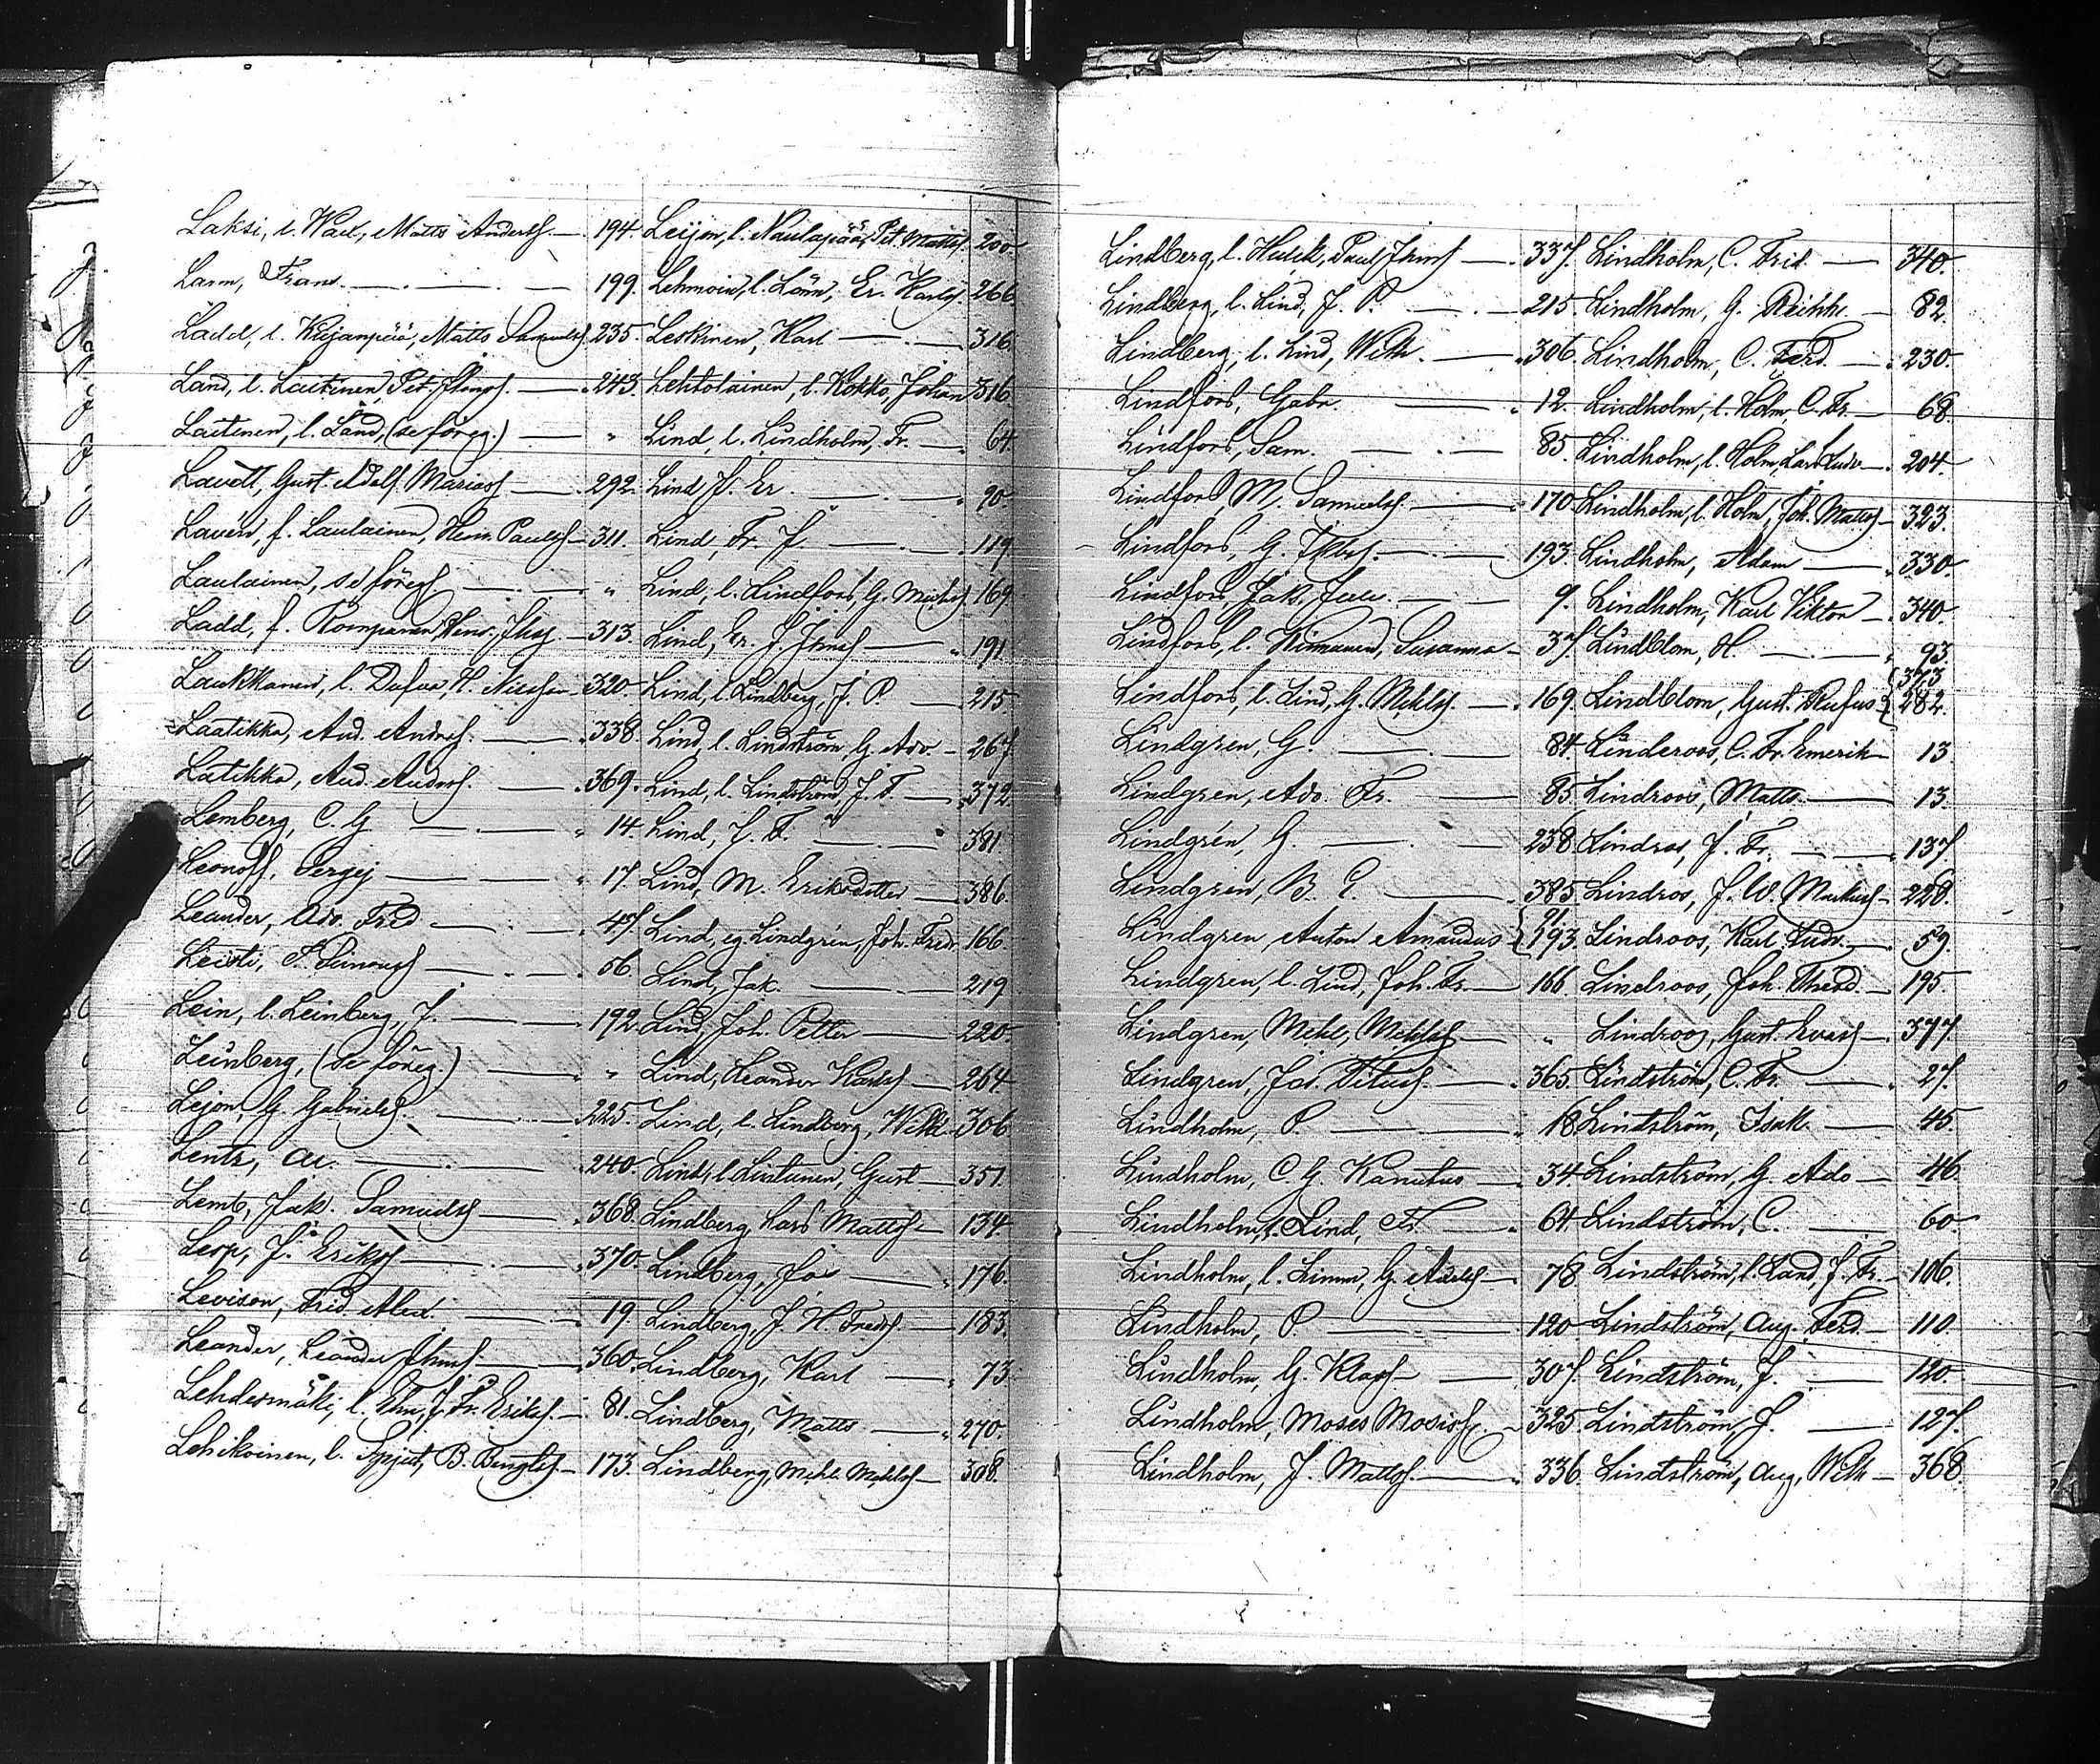 Laksi, l. Wall, Matts Andersf. 194.
Lann, Frans. 199.
Ladd, l. Kujanpää, Matts Samuelsf. 235.
Land, l. Lastunen, Pet. Jkbsf. 243.
Lastunen, l. Land, (se föreg.) "
Lavett, Gust. Adolf Mariasf. 292.
Lavén, f. Laulainen, Henr. Paulsf. 311.
Laulainen, se föreg. "
Ladd, f. Romppanen, Henr. Jhsf. 313.
Laukkanen, l. Dufva, H. Nilsson 320.
Laatikka, And. Andersf. 338.
Latikka, And. Andersf. 369.
Lemberg, C. G. 14.
Leonoff, Sergej 17.
Leander, Ado. Fred 47.
Leisti, S. Simonsf. 56.
Lein, l. Leinberg, J. 192.
Leinberg, (se föreg.) "
Lejon, G. Gabrielsf. 225.
Lentz, Al. 240.
Lemb, Jak. Samuelsf. 368.
Lepp, J. Eriksf. 370.
Levison, Frid. Alex. 19.
Leander, Leander Jhnsf. 360.
Lehdesmäki, l. Ehn, J. Fr. Eriksf. 81.
Lehikoinen, l. Spjut, B. Bengtsf. 173.
Leijon, l. Naulapää, Pet. Mattsf. 200.
Lehmoin, l. Lönn, Er. Karlsf. 266.
Leskinen, Karl 316.
Lehtolainen, l. Kokko, Johan 316.
Lind, l. Lindholm, Fr. 64.
Lind, J. Er. 90.
Lind, Fr. J. 119.
Lind, l. Lindfors, G. Mchlsf. 169.
Lind, Er. J. Jhnsf. 191.
Lind, l. Lindberg, J. P. 215.
Lind, l. Lindström, G. Ado. 267.
Lind, l. Lindström, J. F. 372.
Lind, J. F. 381.
Lind, M. Eriksdotter 386.
Lind, eg. Lindgrén, Joh. Fredr. 166.
Lind, Jak. 219.
Lind, Joh. Petter 220.
Lind, Leander Karlsf. 264.
Lind, l. Lindberg, Wilh. 306.
Lind, l. Liutunen, Gust. 351.
Lindberg, Lars Mattsf. 134.
Lindberg, Jos. 176.
Lindberg, J. H. Fredsf. 183.
Lindberg, Karl 73.
Lindberg, Matts 270.
Lindberg, Mchl. Mchlsf. 308.
Lindberg, l. Hulik, Paul Jhnsf. 337.
Lindberg, l. Lind, J. P. 215.
Lindberg, l. Lind, Wilh. 306.
Lindfors, Gabr. 12.
Lindfors, Sam. 85.
Lindfors, M. Samuelsf. 170.
Lindfors, G. Jkbsf. 193.
Lindfors, Jak. 9.
Lindfors, l. Hirmanen, Susanna 37.
Lindfors, l. Lind, G. Mchlsf. 169.
Lindgren, G. 84.
Lindgren, Ado. Fr. 85.
Lindgrén, G. 238.
Lindgrén, B. E. 385.
Lindgren, Anton Amandus { 91. 193.
Lindgren, l. Lind, Joh. Fr. 166.
Lindgren, Mchl. Mchlsf. "
Lindgren, Jos. Titusf. 365.
Lindholm, P. 18.
Lindholm, C. G. Kanutus 34.
Lindholm, l. Lind, Fr. 64.
Lindholm, l. Linnu, G. Adolfsf. 78.
Lindholm, P. 120.
Lindholm, G. Klasf. 307.
Lindholm, Moses Mosisf. 325.
Lindholm, J. Mattsf. 336.
Lindholm, C. Frid. 340.
Lindholm, G. Reinh. 82.
Lindholm, C. Ferd. 230.
Lindholm, l. Holm, C. Fr. 68.
Lindholm, l. Holm, Lars Ludv. 204.
Lindholm, l. Holm, Joh. Mattsf. 323.
Lindholm, Adam 330.
Lindholm, Karl Viktor 340.
Lindblom, H. 93.
Lindblom, Gust. Rufus { 373 282.
Linderoos, C. Fr. Emerik 13.
Lindroos, Matts. 13.
Lindros, J. Fr. 137.
Lindros, J. W. Markusf. 228.
Lindroos, Karl Ludv. 59.
Lindroos, Joh. Theod. 195.
Lindroos, Gust. Evasf. 377.
Lindström, C. Fr. 27.
Lindström, Isak 45.
Lindström, G. Ado 46.
Lindström, C. 60.
Lindström, l. Land, J. Fr. 106.
Lindström, Aug. Ferd. 110.
Lindström, J. 120.
Lindström, J. 127.
Lindström, Aug. Wilh 368.